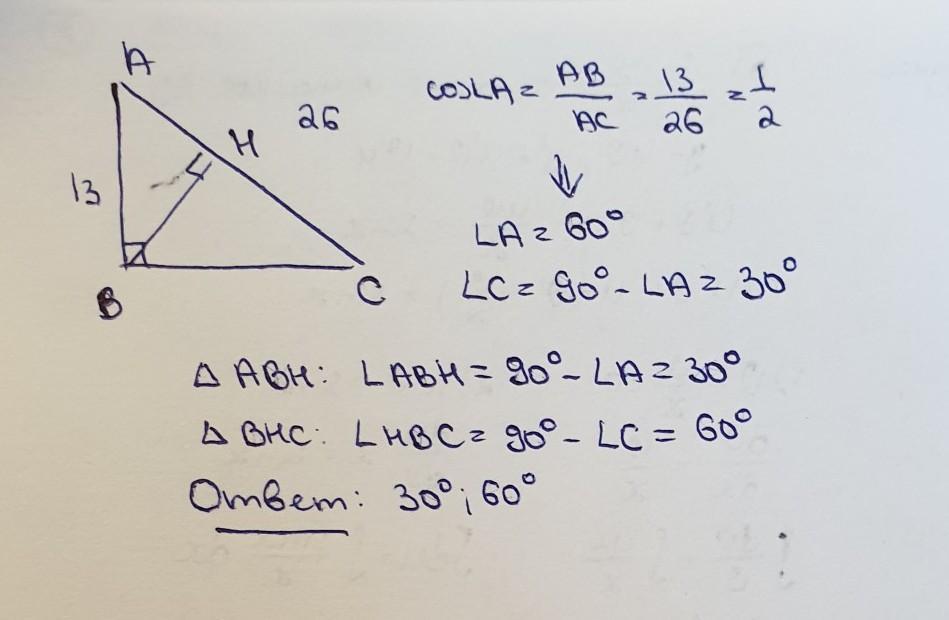 A
H
26
13
B
C
cos∠A = AB/AC = 13/26 = 1/2
⇓
∠A = 60°
∠C = 90° - ∠A = 30°
Δ ABH: ∠ABH = 90° - ∠A = 30°
Δ BHC: ∠HBC = 90° - ∠C = 60°
Ответ: 30°; 60°